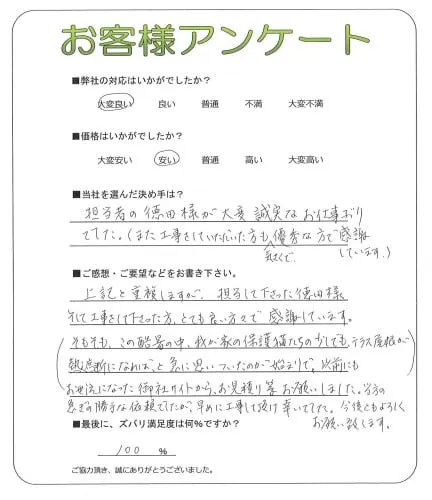 お客様アンケート
■弊社の対応はいかがでしたか？
大変良い 良い 普通 不満 大変不満
■価格はいかがでしたか？
大変安い 安い 普通 高い 大変高い
■当社を選んだ決め手は？
担当者の徳田様が大変誠実なお仕事ぶり
でした。（また工事をしていただいた方も優秀な方で感謝
気さくで、
しています。）
■ご感想・ご要望などをお書き下さい。
上記と重複しますが、担当して下さった徳田様
そして工事をして下さった方、とても良い方々で感謝しています。
そもそも、この酷暑の中、我が家の保護猫たちの少しでも、テラス屋根が
熱遮断になれば、と急に思いついたのが始まりで、以前にも
お世話になった御社サイトから、お見積り等お願いしました。当方の
急ぎの勝手な依頼でしたが、早めに工事して頂け幸いでした。今後ともよろしく
お願い致します。
■最後に、ズバリ満足度は何％ですか？
100 %
ご協力頂き、誠にありがとうございました。